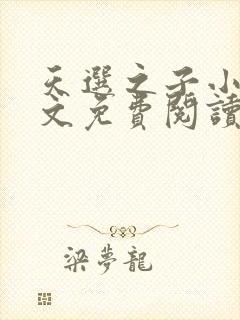 天選之子小
文免費閱讀
梁夢龍